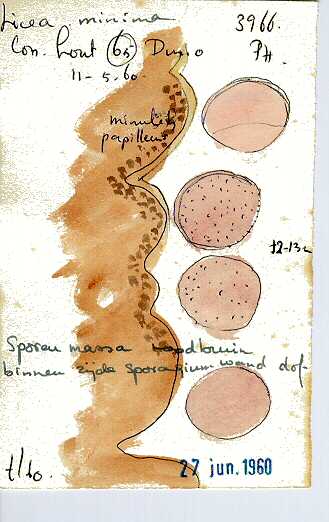 Licea minima
3966.
Con. hout 65 Dunio
PH.
11-5-60.
minutely
papilleus
12-13µ
Sporen massa roodbruin
binnen zijde Sporangium wand dof.
t/60.
27 jun. 1960